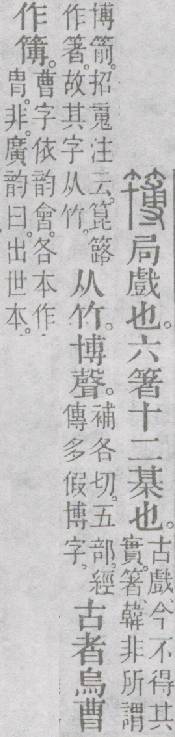 簙局戲也。六箸十二棊也。古戲。今不得其實。箸、韓非所謂
博箭。招䰟注云。箟簬作箸。故其字从竹。从竹。博聲。補各切。五部。經傳多假博字。古者烏曹
作簙。曹字依韵會。各本作冑。非。廣韵曰。出世本。